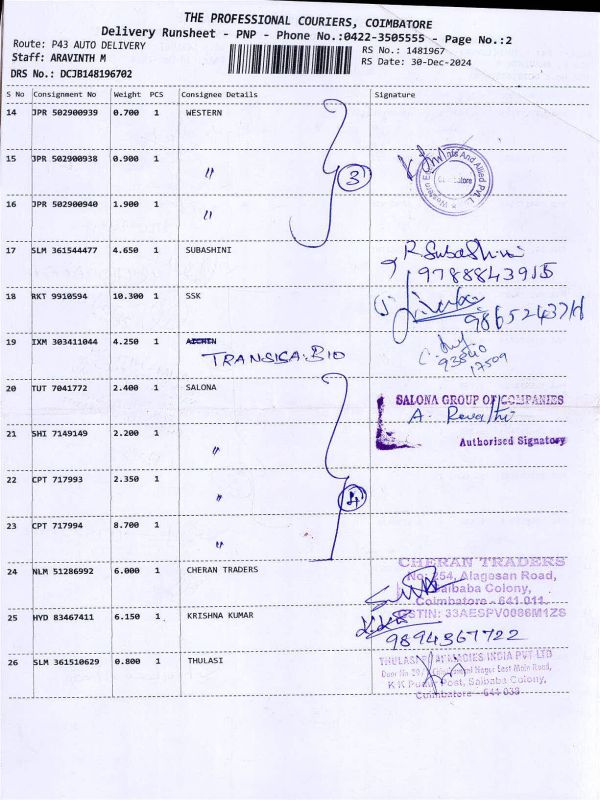 THE PROFESSIONAL COURIERS, COIMBATORE
Delivery Runsheet - PNP - Phone No.:0422-3505555 - Page No.:2
Route: P43 AUTO DELIVERY RS No.: 1481967
Staff: ARAVINTH M RS Date: 30-Dec-2024
DRS No.: DCJB148196702
S No Consignment No Weight PCS Consignee Details Signature
14 JPR 502900939 0.700 1 WESTERN
15 JPR 502900938 0.900 1 〃 3
16 JPR 502900940 1.900 1 〃
17 SLM 361544477 4.650 1 SUBASHINI R Subashini
9788843915
18 RKT 9910594 10.300 1 SSK
19 IXM 303411044 4.250 1 TRANSIGA BIO
93540
17509
20 TUT 7041772 2.400 1 SALONA SALONA GROUP OF COMPANIES
A. Revathi
21 SHI 7149149 2.200 1 〃 Authorised Signatory
22 CPT 717993 2.350 1 〃 4
23 CPT 717994 8.700 1 〃
24 NLM 51286992 6.000 1 CHERAN TRADERS CHERAN TRADERS
No: 254, Alagesan Road,
Saibaba Colony,
Coimbatore - 641 011
25 HYD 83467411 6.150 1 KRISHNA KUMAR GSTIN: 33AESPV0086M1ZS
9894367722
26 SLM 361510629 0.800 1 THULASI THULASI PHARMACIES INDIA PVT LTD
East Main Road,
Post, Saibaba Colony,
Coimbatore - 641 038